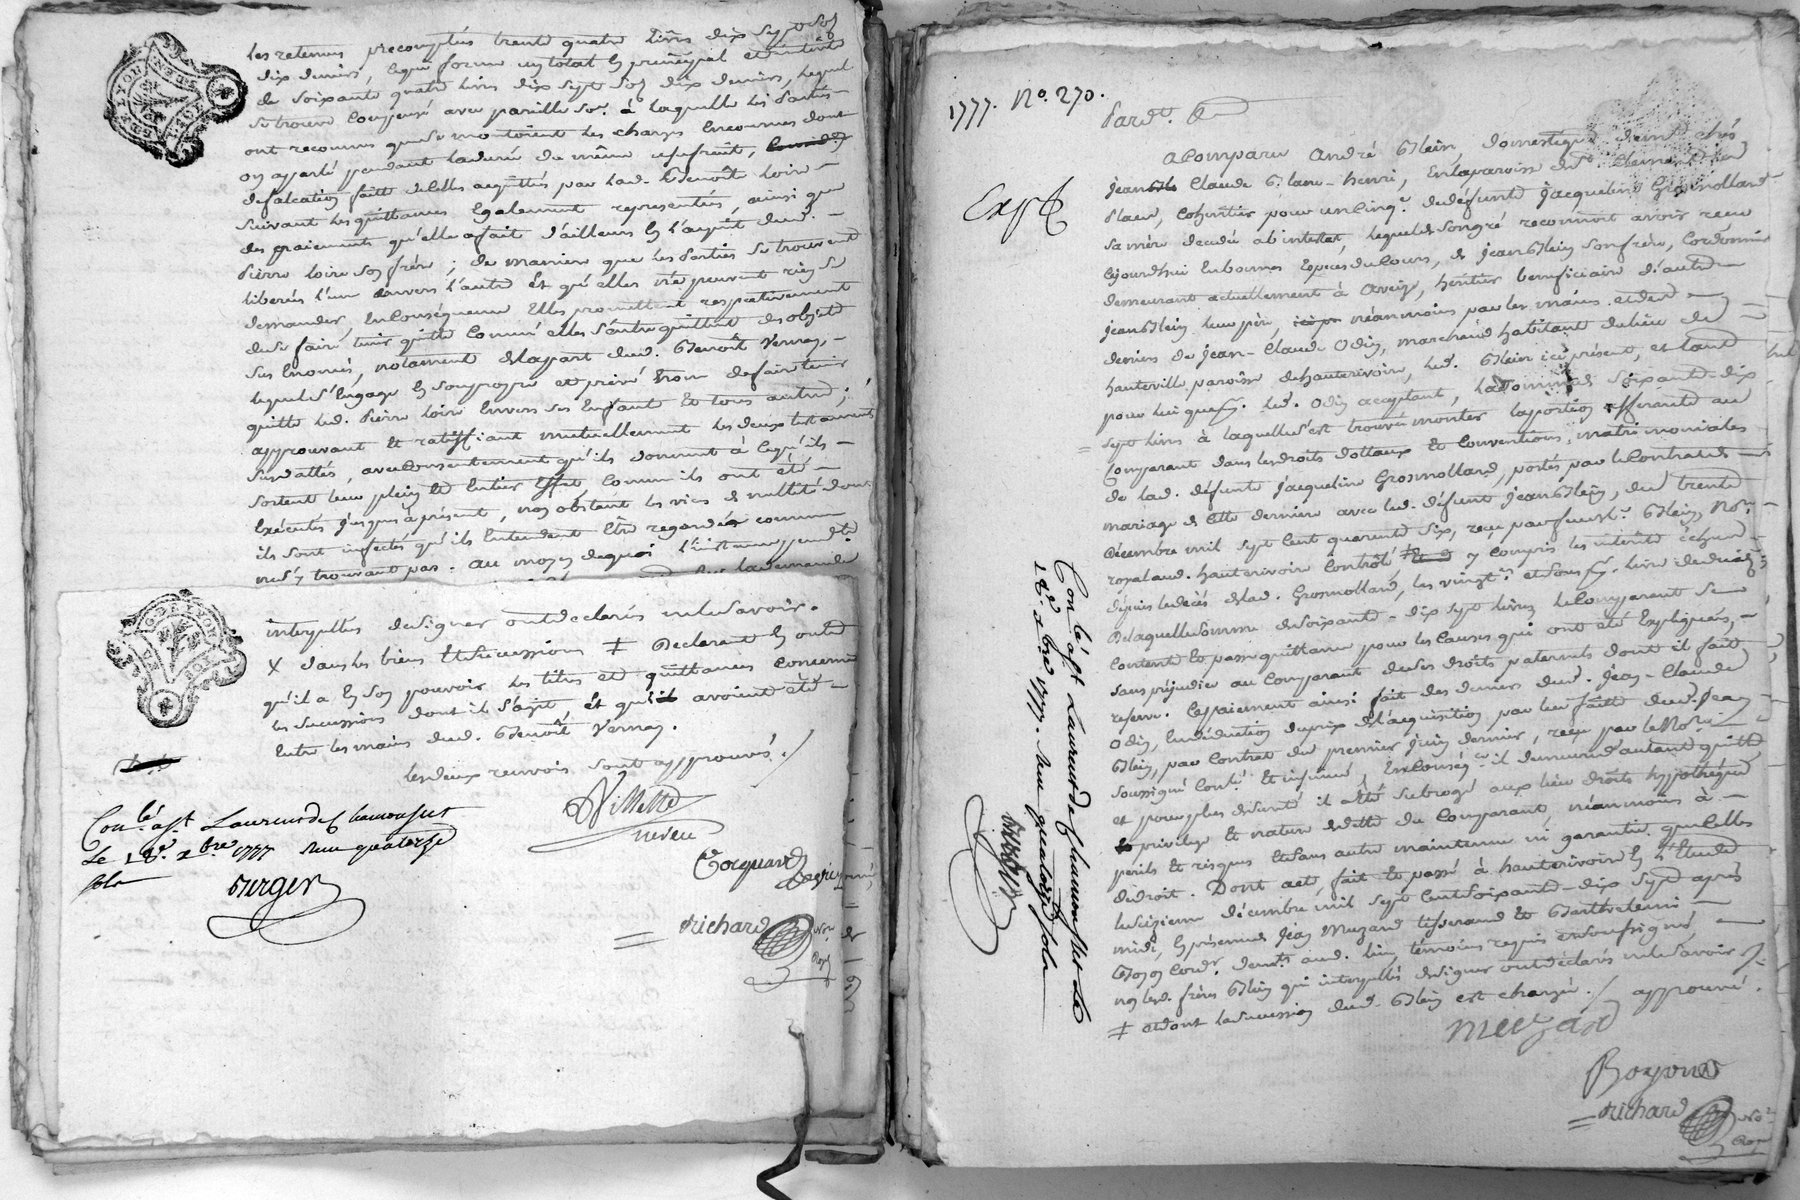 les retenues precomptées trente quatre livres dix sept sols
dix deniers, ce qui forme un total en principal et intérêts
de soixante quatre livres dix sept sols dix deniers, lequel
se trouve compensé avec pareille so.e à laquelle les parties
ont reconnu que se montoient les charges
on apparté pendant la durée du même usufruit,
defalcation faitte de celles acquittés par lad. Benoîte Loire
suivant les quittances également representées, ainsi que
des paiements qu'elle a fait d'ailleurs en l'acquit dud.
Pierre Loire son frère ; de maniere que les parties se trouvent
liberées l'une envers l'autre et qu'elles ne peuvent rien se
demander, en conséquence elles promettent respectivement
de se faire tenir quitte comme elles s'entrequittent des objets
sus énoncés, notament de la part dud. Benoît Vernay,
lequel s'engage en son propre et privé nom de faire tenir
quitte led. Pierre Loire envers ses enfants et tous autres ;
approuvant et ratiffiant mutuellement les deux testaments
susdattés, avec consentement qu'ils donnent à ce qu'ils
sortent leur plein et entier effet comme ils ont été
exécutés jusques à présent, non obstant les vices de nullité dont
ils sont infectés qu'ils entendent être regardés comme
ne s'y trouvant pas. au moyen de quoi l'instance pend.te
la demande
interpellés de signer ont déclarés ne le savoir.
X dans les biens et successions ‡ Declarant en outre
qu'il a en son pouvoir les titres et quittances concernant
les successions dont il s'agit, et qu'il avoient été
entre les mains dud. Benoît Vernay.
les deux renvois sont approuvés ./
Villette
neveu
Con.lé à S.t Laurent de Chamousset
Le 18.e Xbre 1777 Reçu quatorze
sols
Burger
Cocquard
Richard
No.re
Royal
1777. N.o 270.
Pard.t &
Exp.é
a Comparu André Blein, domestique dem.t chés
Jean Claude henri, en la paroisse de S.t Clement les
Places, cohéritier pour un cinq.e de défunte Jacqueline Grosmolland
sa mère decedée ab intestat, lequel de son gré reconnoit avoir reçu
cejourd'hui en bonnes especes du cours, de Jean Blein son frère, cordonnier
demeurant actuellement à Aveize, héritier beneficiaire d'autre
Jean Blein leur père, néanmoins par les mains et des
deniers de Jean-Claude Odin, marchand habitant du lieu de
hauteville paroisse d'hauterivoire, led. Blein ici présent, et tant
pour lui que led. Odin acceptant, la somme de soixante dix
sept livres à laquelle s'est trouvée monter la portion afferante au
Comparant dans les droits dottaux et conventions matrimoniales
de lad. défunte Jacqueline Grosmolland, portés par le contrat de
mariage de cette derniere avec led. défunt Jean Blein, du trente
décembre mil sept cent quarente six, reçu par feu M.e Blein No.re
royal aud. hauterivoire Controlé ‡ y compris les intérêts échus
depuis le décès de lad. Grosmolland,
De laquelle somme de soixante-dix sept livres le Comparant se
contente et passe quittance pour les causes qui ont été expliquées,
sans préjudice au Comparant de ses droits paternels dont il fait
reserve. Ce paiement ainsi fait des deniers dud. Jean-Claude
Odin, en déduction du prix de l'acquisition par lui faitte dud. Jean
Blein, par contrat du premier juin dernier, reçu par le No.re
soussigné Con.lé et insinué, en conséq.ce il demeure d'autant quitte
et pour plus de sureté il a été subrogé aux lieu droits hypothéques
privilege et nature de dette du Comparant, néanmoins à
perils et risques et sans autre maintenue ni garantie que celles
de droit. Dont acte, fait et passé à hauterivoire en l'Etude
le seizieme décembre mil sept cent soixante-dix sept après
midi, en présences Jean Muzard tisserand et Barthelemi
Boyon cord.r dem.ts aud. lieu, témoins requis et soussignés,
non lesd. frères Blein qui interpellés de signer ont déclarés ne le savoir ./.
‡ et dont la succession dud. Blein est chargée ./ approuvé.
Muzard
Boyon
Richard
No.re
Royal
Con.lé à S.t Laurent de Chamousset le
18.e Xbre 1777. Reçu quatorze sols
Burger